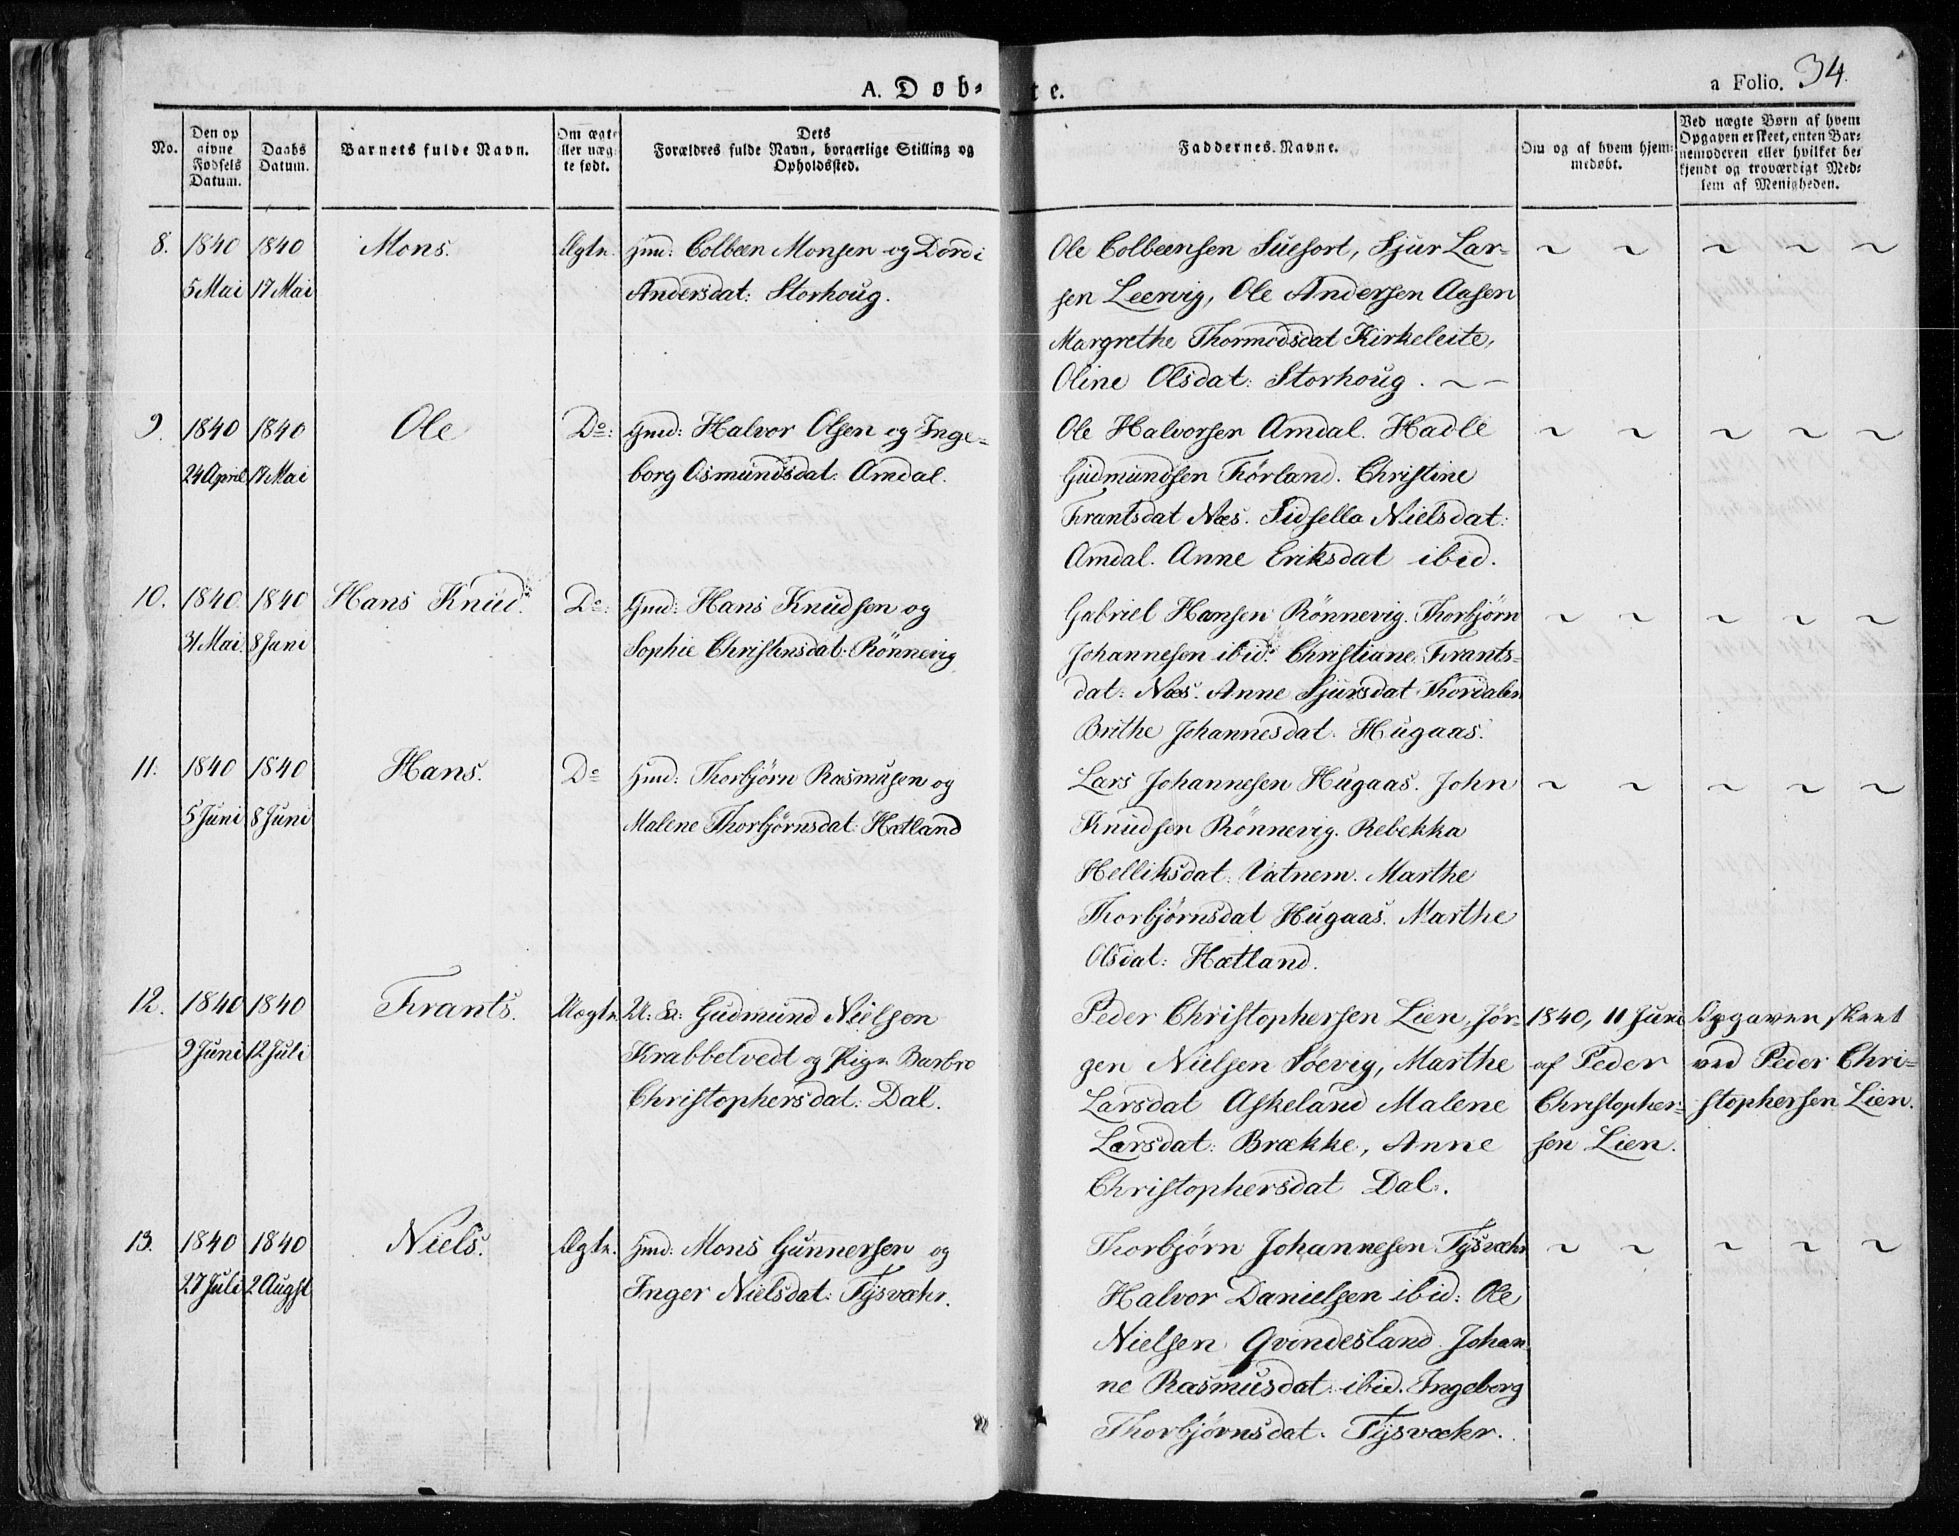 A. Døb- te. a Folio. 34.
No. Den opgivne Fødsels Datum. Daabs Datum. Barnets fulde Navn. Om ægte eller uægte født. Dets Forældres fulde Navn, borgerlige Stilling og Opholdssted. Faddernes Navne. Om og af hvem hjemmedøbt. Ved uægte Børn af hvem Opgaven er skeet, enten Barnemoderen eller hvilket bekjendt og troværdigt Medlem af Menigheden.
8. 1840 1840 Mons. Ægte. Gmd: Colbeen Monsen og Dordi Ole Colbeensen Suesort, Sjur Lar- ~ ~ ~ ~ ~
5 Mai 17 Mai Andersdat: Storhoug. sen Leervig, Ole Andersen Aasen
Margrethe Thormodsdat Kirkeleite,
Oline Olsdat: Storhoug. ~ –
9. 1840 1840 Ole Do: Gmd: Halvor Olsen og Inge- Ole Halvorsen Amdal. Hadle ~ ~ ~ ~ ~
24 April 17 Mai borg Osmundsdat: Amdal. Gudmundsen Førland. Christine
Frantsdat Næs. Sidsella Nielsdat:
Amdal. Anne Eriksdat ibid.
10. 1840 1840 Hans Knud. Do: Gmd: Hans Knudsen og Gabriel Hansen Rönnevig. Thorbjørn ~ ~ ~ ~ ~
31 Mai 8 Juni Sophie Christensdat: Rönnevig Johannesen ibid: Christiane Frants-
dat: Næs. Anne Sjursdat
Brithe Johannesdat. Hugaas.
11. 1840 1840 Hans. Do Gmd: Thorbjørn Rasmusen og Lars Johannesen Hugaas. John ~ ~ ~ ~ ~
5 Juni 8 Juni Malene Thorbjørnsdat: Hætland Knudsen Rönnevig. Rebekka
Helliksdat: Vatnem. Marthe
Thorbjørnsdat Hugaas. Marthe
Olsdat: Hætland.
12. 1840 1840 Frants. Uægte. U: K: Gudmund Nielsen Peder Christophersen Lien, Jør- 1840, 11 Juni Opgaven skeet
9 Juni 12 Juli Krabbetvedt og Pige Barbro gen Nielsen Söevig, Marthe af Peder ved Peder Chri-
Christophersdat: Dal. Larsdat Askeland Malene Christopher- stophersen Lien.
Larsdat: Brække, Anne sen Lien.
Christophersdat Dal.
13. 1840 1840 Niels. Ægte. Gmd: Mons Gunnersen og Thorbjørn Johannesen Tysvæhr ~ ~ ~ ~ ~
27 Juli 2 Augst Inger Nielsdat: Tysvæhr. Halvor Danielsen ibid: Ole
Nielsen Qvindesland. Johan
ne Rasmusdat: ibid. Ingeborg
Thorbjørnsdat. Tysvæhr.